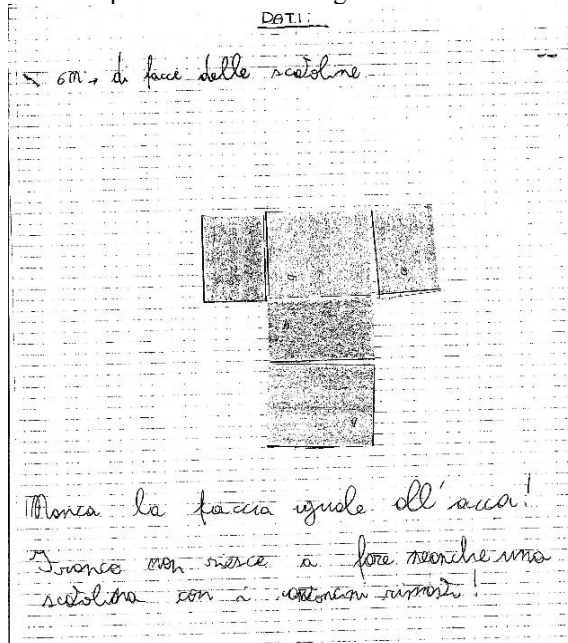 DATI:
6 n. di facce delle scatoline
g
g
h
g
Manca la faccia uguale all'acca!
Franco non riesce a fare neanche una
scatolina con i cartoncini rimasti!